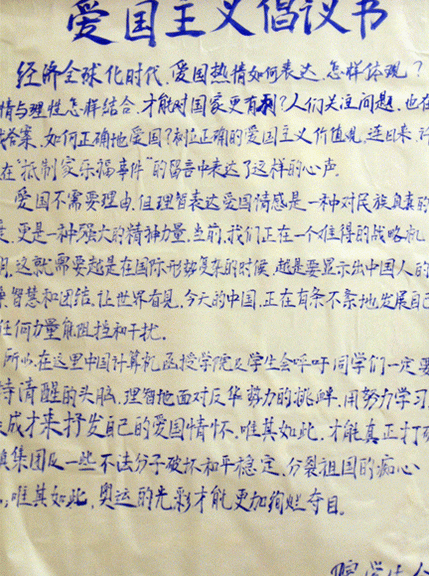 爱国主义倡议书
经济全球化时代,爱国热情如何表达,怎样体现?
情与理性怎样结合,才能对国家更有利?人们关注问题,也在
答案,如何正确地爱国?树立正确的爱国主义价值观,连日来,许
在“抵制家乐福事件”的留言中表达了这样的心声。
爱国不需要理由,但理智表达爱国情感是一种对民族负责的
度,更是一种强大的精神力量。当前,我们正在一个难得的战略机
期,这就需要越是在国际形势复杂的时候,越是要显示出中国人的
智慧和团结,让世界看见,今天的中国,正在有条不紊地发展自己
任何力量能阻挡和干扰。
所以,在这里中国计算机函授学院及学生会呼吁同学们一定要
持清醒的头脑,理智地面对反华势力的挑衅,用努力学习,
成才来抒发自己的爱国情怀。唯其如此,才能真正打破
集团及一些不法分子破坏和平稳定,分裂祖国的痴心
,唯其如此,奥运的光彩才能更加绚烂夺目。
院学生会